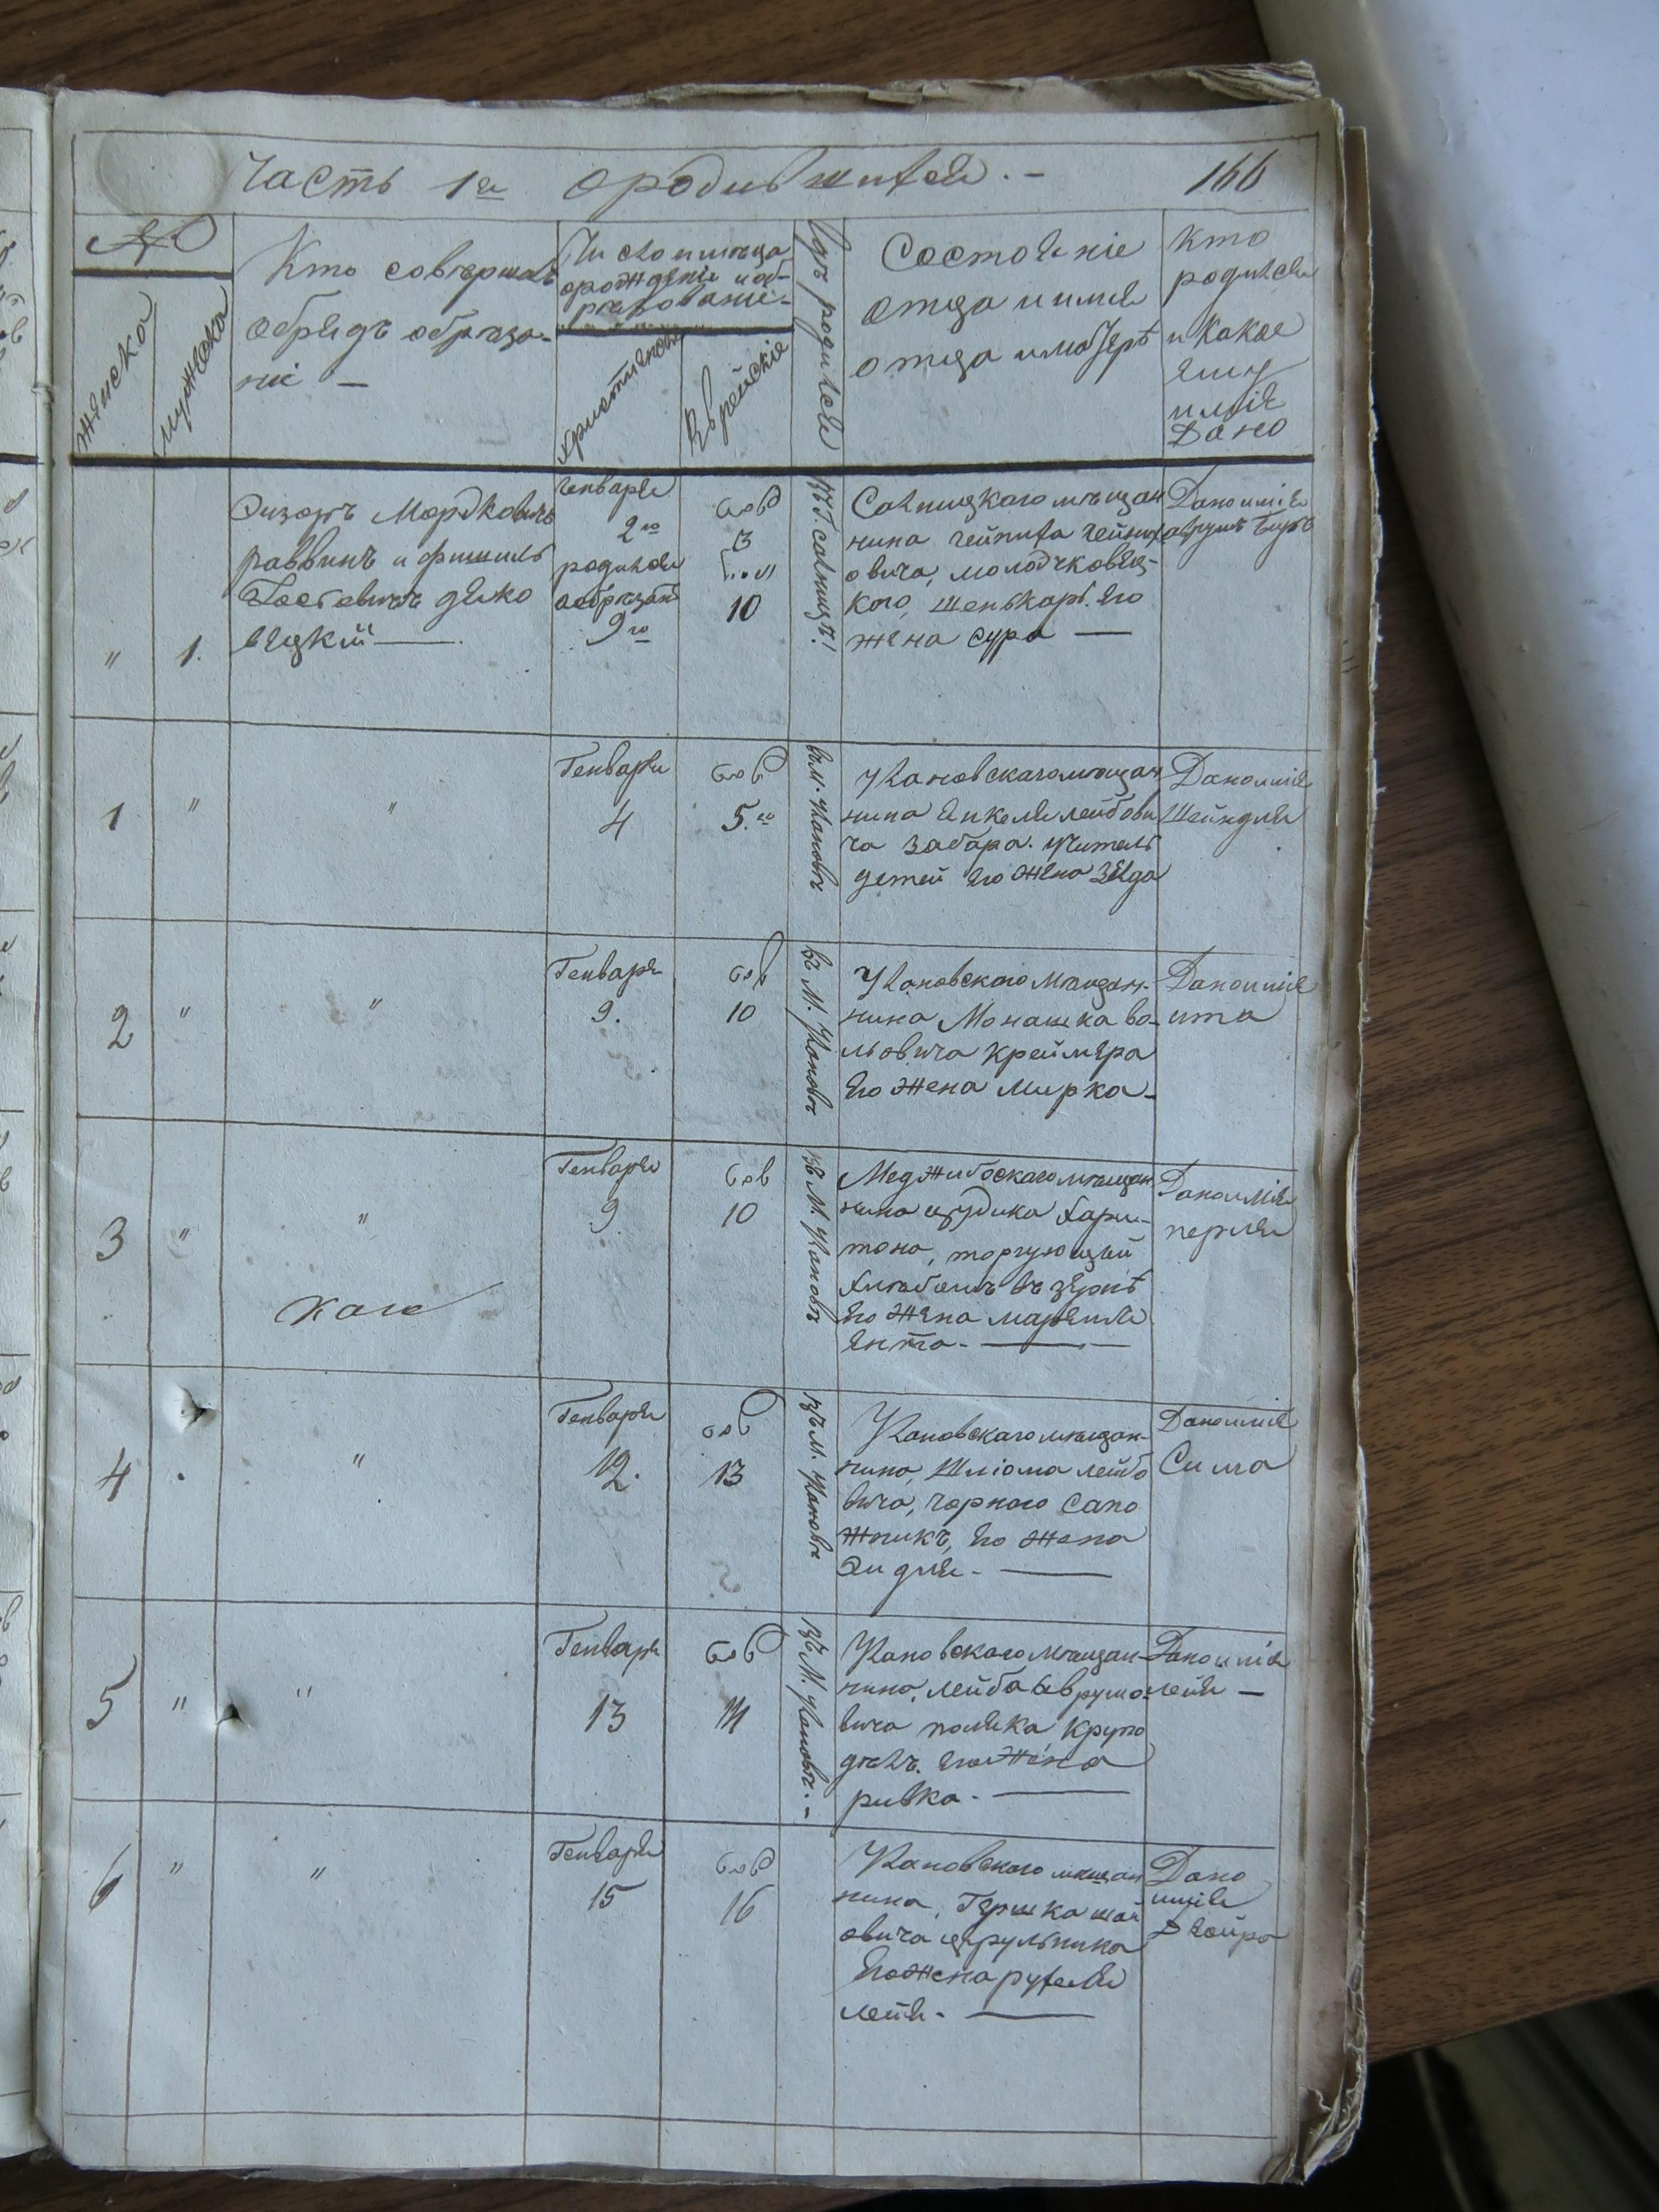 Часть 1я о родившихся. -
166
№
Женска
мужска
Кто совершалъ
обрядъ обреза-
ніе —
Число и месяца
о рождение и об-
резование-
христіянски
Еврейскіе
Где родился
Состояніе
отца и имя
отца и матерѣ
Кто
родился
и какое
ему
имя
Дано
"
1.
Мордковичъ
раввинъ и Фишиль
вецкій —
Генваря
2го
родился
а обрезанъ
9го
3
10
Мѣщан
нина
овича, молодчковец-
кого, шенькарь. Его
жена сура —
Дано имя
аврумъ Беръ
1
"
"
Генваря
4
5.го
Улановскаго мещан
нина Янкеля Лейбови
ча Забара. Учитель
детей Его жена Зелда
Дано имя
Шейндля
2
"
"
Генваря
9.
10
въ М. Улановъ
Улановского мещан-
нина Монашка Во-
льовича Креймера
Его жена Мирка-
Дано имя
ита
3
"
"
Генваря
9
10
въ М. Улановъ
Меджибоского мещан
нина Хари-
тона, торгующей
хлебомъ въ зернѣ
Его жена марьямъ
Ента. —
Дано имя
перля
4
"
Генваря
12.
13
въ м. Улановъ
Улановскаго мещан-
нина, Шліома лейбо
вича, чорного сапо
жникъ, Его жена
Эидля - —
Дано имя
Сима
5
"
"
Генваря
13
14
въ М. Улановъ. -
Улановского мещан-
нина, лейба Аврумо-
вича поляка крупо
делъ. Его жена
ривка. —
Дано имя
лея —
6
"
"
Генваря
15
16
Улановского мещан
нина, Гершка шай
овича цирульника
Его жена рухля
лея. —
Дано
имя
Двойра